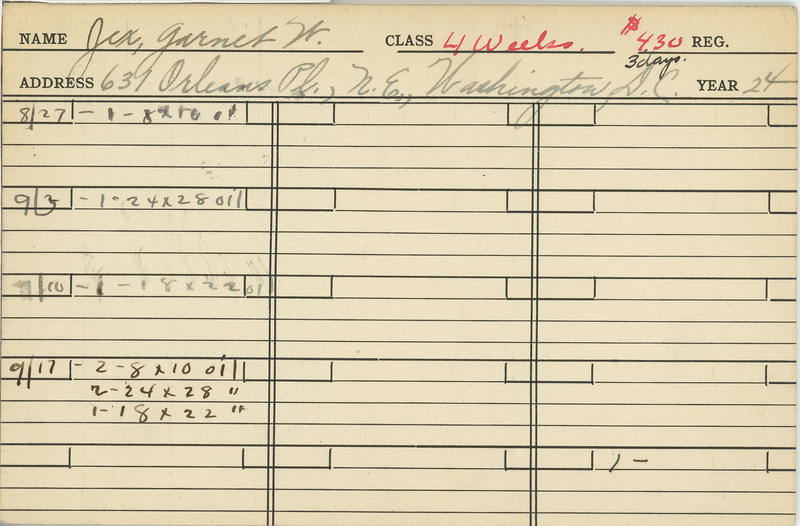 NAME Jex, Garnet W. CLASS 4 Weeks. $4.30 REG.
3 days.
ADDRESS 631 Orleans Pl., N.E., Washington, D.C. YEAR 24
8/27 - 1 - 8x10 oil
9/3 - 1 - 24x28 oil
9/10 - 1 - 18x22 oil
9/17 - 2 - 8x10 oil
2 - 24x28 "
1 - 18x22 "
1 -